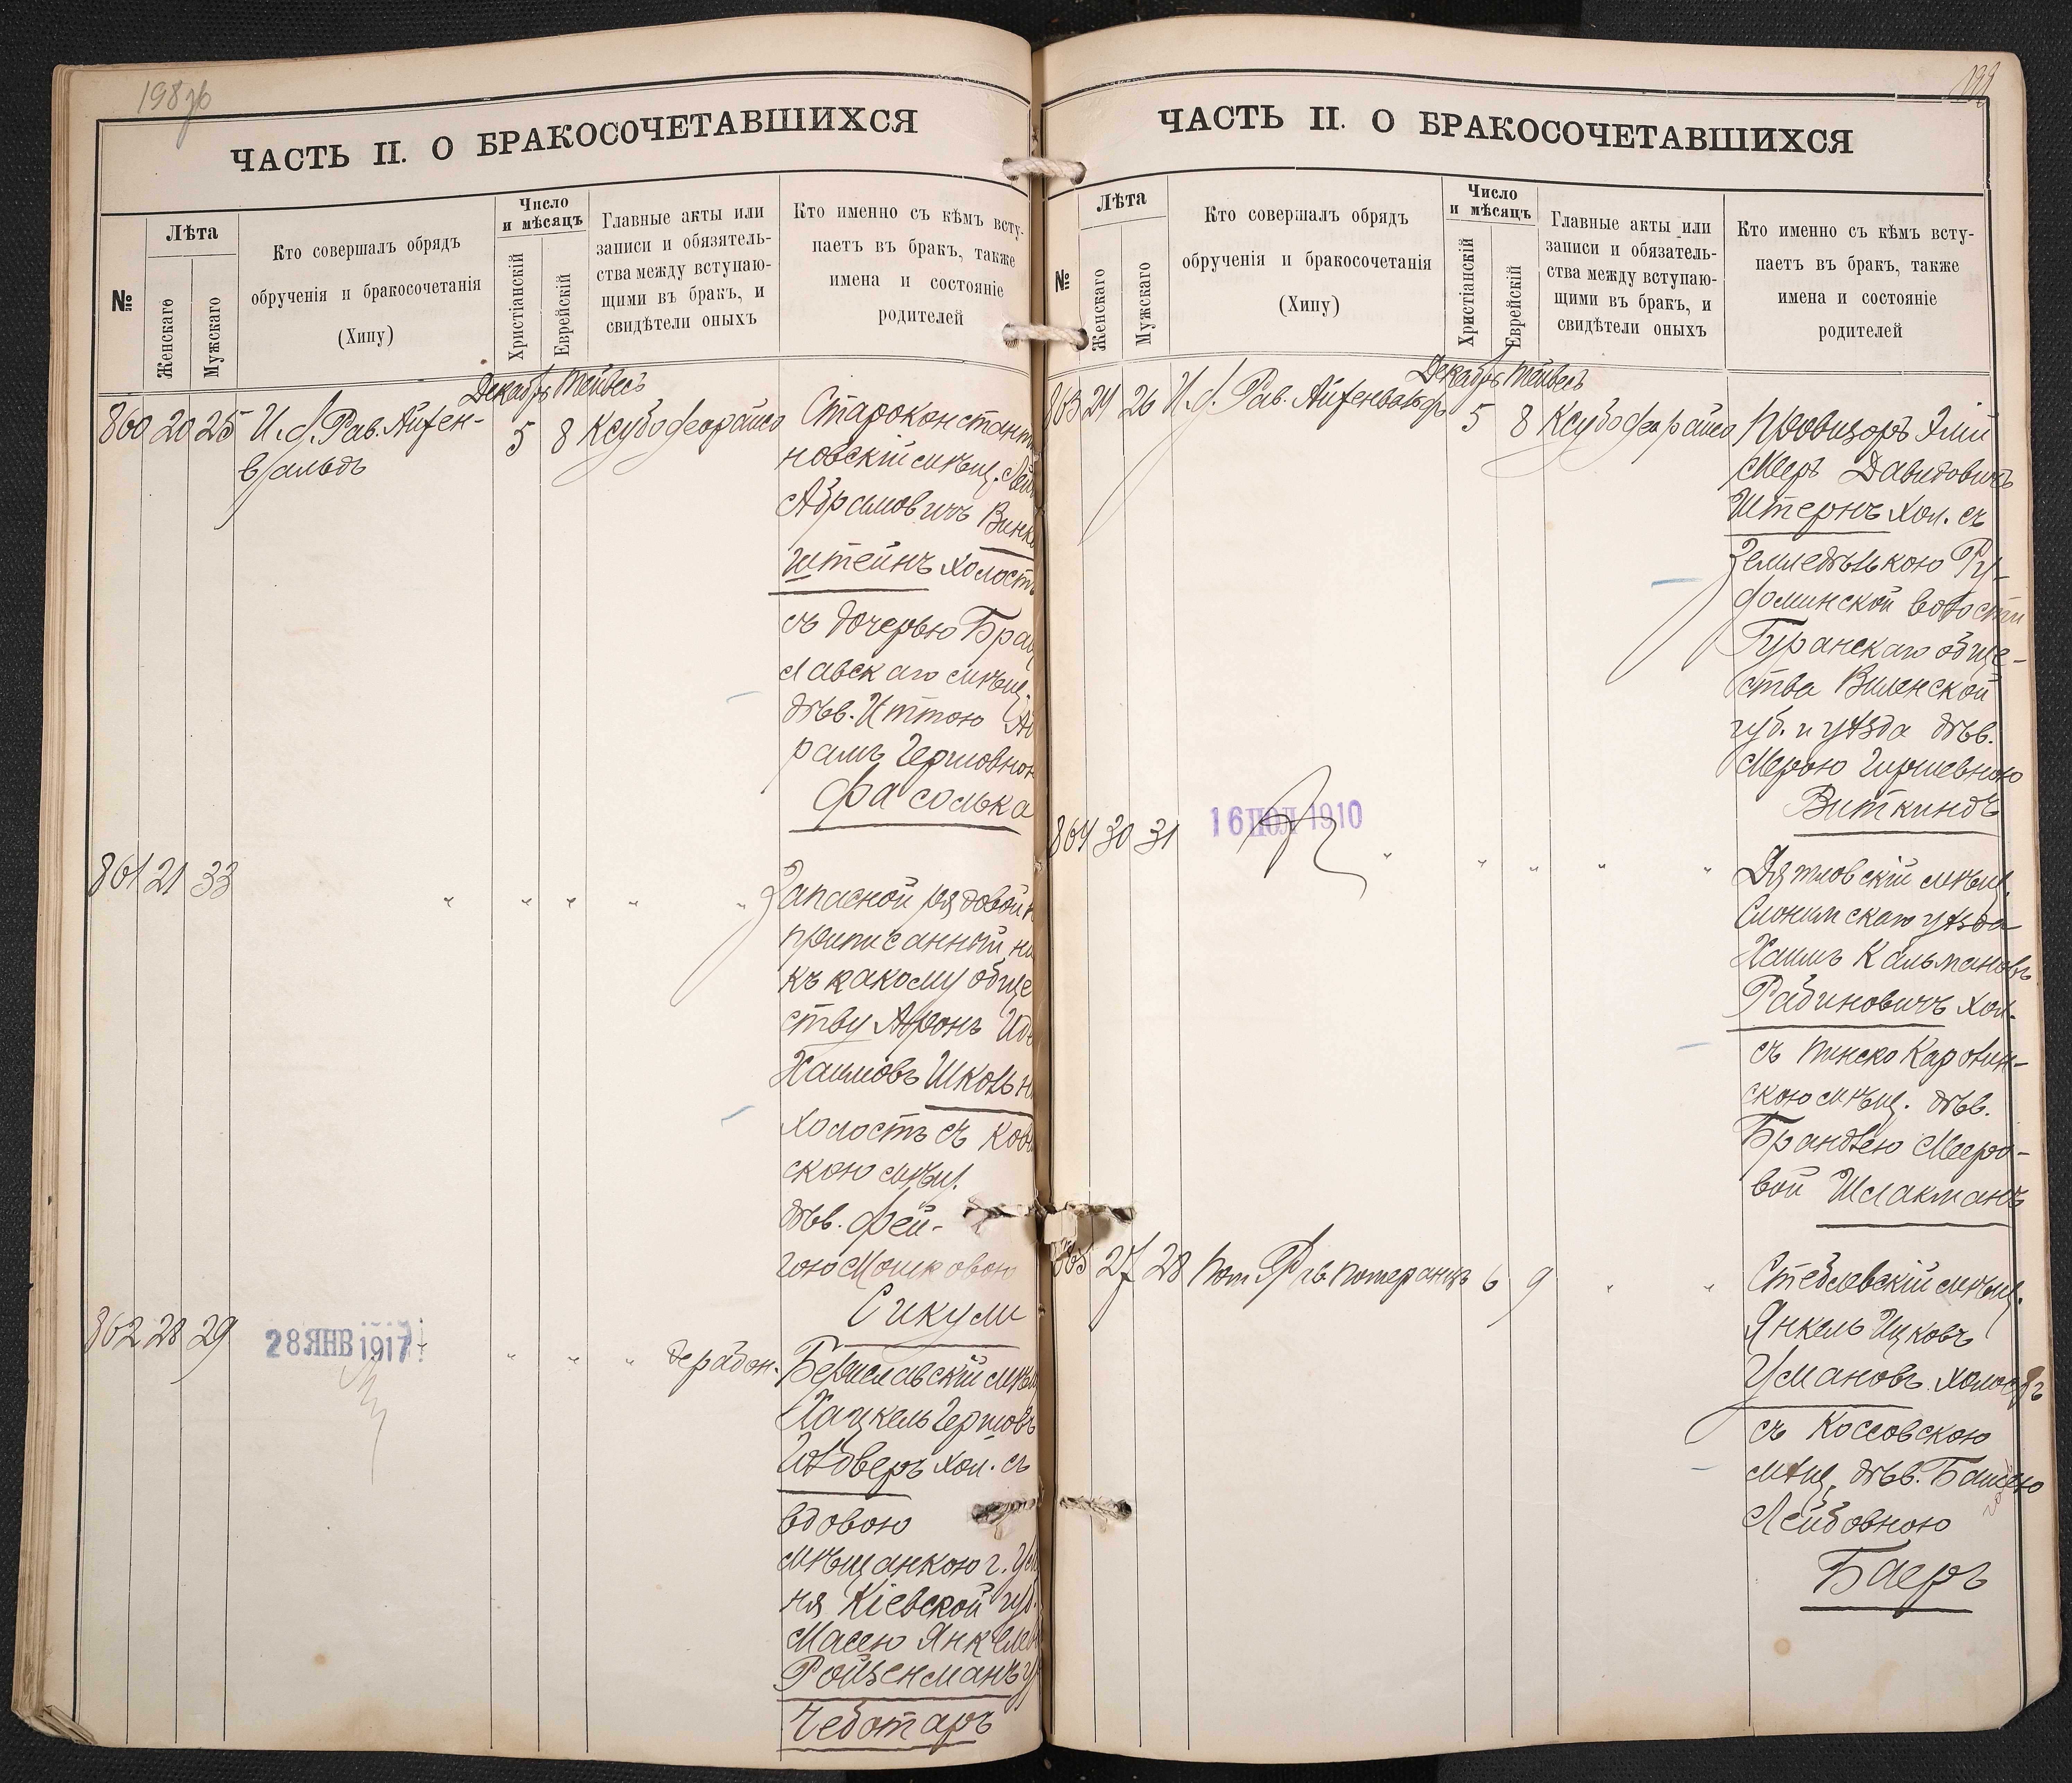 198об
ЧАСТЬ II. О БРАКОСОЧЕТАВШИХСЯ
№
Лѣта
Женскаго
Мужскаго
Кто совершалъ обрядъ
обрученія и бракосочетанія
(Хипу)
Число
и мѣсяцъ
Христіанскій
Еврейскій
Главные акты или
записи и обязятель-
ства между вступаю-
щими въ бракъ, и
свидѣтели оныхъ
Кто именно съ кѣмъ всту-
паетъ въ бракъ, также
имена и состояніе
родителей
Декабрь Тейвесъ
860 20 25 И.д. Рав. Айзен-
вальдъ
5 8
Старокон стант
новскій мѣщ.
Абрамовичъ Винк
штейнъ холостъ
съ дочерью Брац
лавскаго мѣщ.
дѣв. Иттою Аб
рамъ Гершовною
Фасолька
861 21 33 " " " " "
Запасной рядовой
приписанный ни
къ какому обще
ству Аронъ
Хаимовъ Школьн
холостъ съ Ков
скою мѣщ.
дѣв. Фей-
гою Мошковою
Сикули
862 28 29 28 ЯНВ 1917 " " "
Бериславскій мѣщ
Хацкель Гершовъ
хол. съ
вдовою
мѣщанкою г. Ума
ня Кіевской губ.
Масею Янкелев
Ройзенманъ
Чеботаръ
ЧАСТЬ II. О БРАКОСОЧЕТАВШИХСЯ
№
Лѣта
Женскаго
Мужскаго
Кто совершалъ обрядъ
обрученія и бракосочетанія
(Хипу)
Число
и мѣсяцъ
Христіанскій
Еврейскій
Главные акты или
записи и обязатель-
ства между вступаю-
щими въ бракъ, и
свидѣтели оныхъ
Кто именно съ кѣмъ всту-
паетъ въ бракъ, также
имена и состояніе
родителей
Декабрь Тейвесъ
863 24 26 И.д. Рав. Айзенвальдъ 5 8
Провизоръ Элій
Мееръ Давидовичъ
Штернъ хол. съ
земледѣлькою Ру-
доминской волости
Гуранскаго обще-
ства Виленской
губ. и уѣзда дѣв.
Мерою Гиршевною
Виткиндъ
864 30 31 16 ІЮЛ 1910 " " " " "
Дятловскій мѣщ.
Слонимскаго уѣзда
Хаимъ Кальмановъ
Рабиновичъ хол.
съ Пинско Каролин-
скою мѣщ. дѣв.
Брандлею Мееро-
вой Шлакманъ
865 27 28 Пом. Рав. 6 9 " "
Стеблевскій мѣщ.
Янкель Ицковъ
Умановъ холостъ
съ Коссовскою
мѣщ. дѣв. Башею
Лейбовною
Баеръ